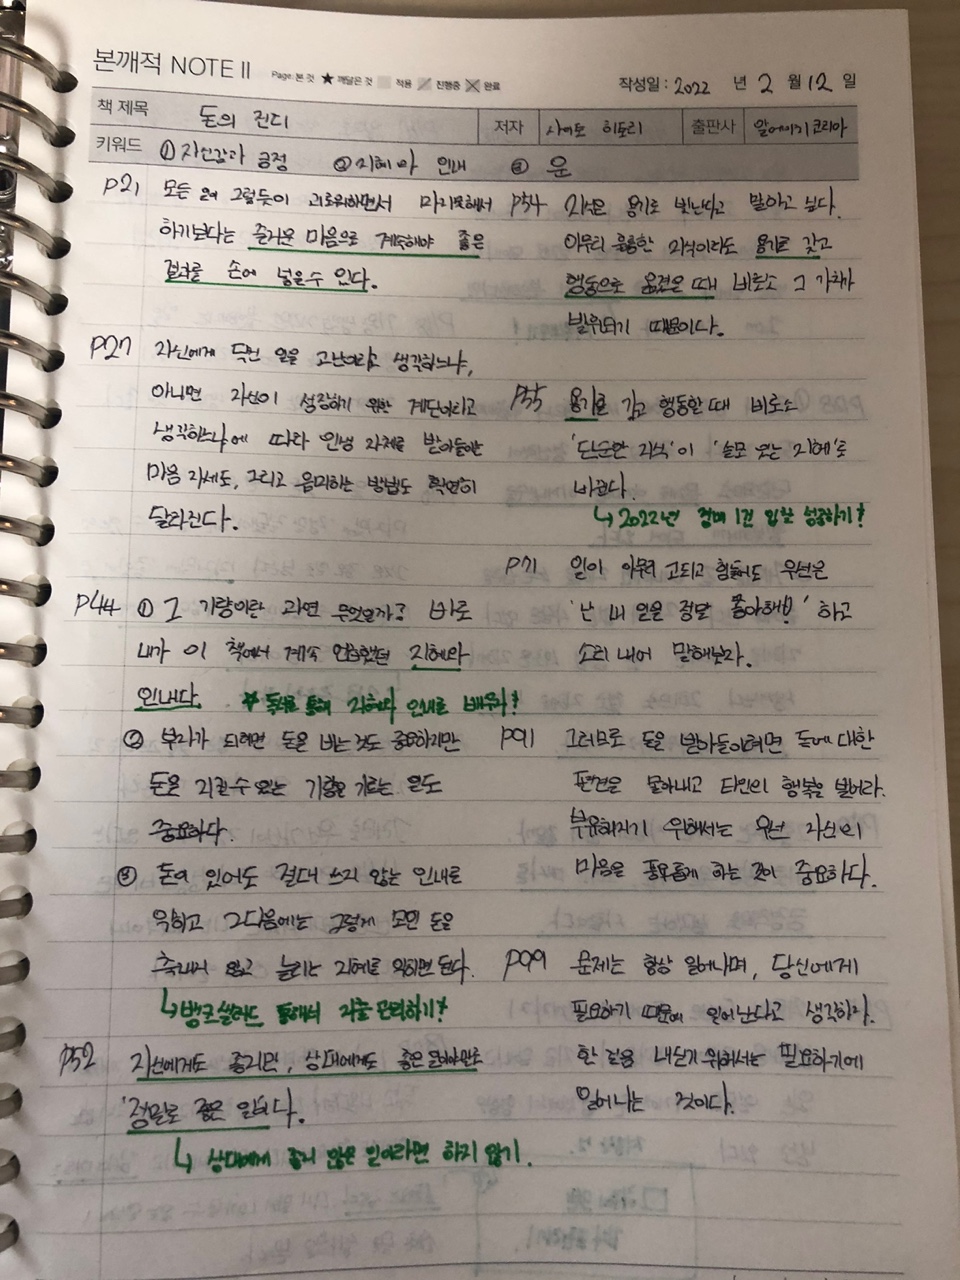 본깨적 NOTE II
Page 본 것 ★ 깨달은 것 적용 진행중 완료
작성일 : 2022 년 2 월 12 일
책 제목 돈의 진리 저자 사이토 히토리 출판사 알에이치코리아
키워드 ① 자신감과 긍정 ② 지혜와 인내 ③ 운
P21 모든 일에 그렇듯이 괴로워하면서 마지못해서
하기보다는 즐거운 마음으로 계속해야 좋은
결과를 손에 넣을 수 있다.
P27 자신에게 닥친 일을 고난이라고 생각하느냐,
아니면 자신이 성장하기 위한 계단이라고
생각하느냐에 따라 인생 자체를 받아들이는
마음 자세도, 그리고 음미하는 방법도 확연히
달라진다.
P44 ① 그 기량이란 과연 무엇일까? 바로
내가 이 책에서 계속 언급했던 지혜와
인내다. * 독서를 통해 지혜와 인내를 배우자!
② 부자가 되려면 돈을 버는 것도 중요하지만
돈을 지킬 수 있는 기량을 기르는 일도
중요하다.
③ 돈이 있어도 절대 쓰지 않는 인내를
익히고 그다음에는 그렇게 모인 돈을
축내지 않고 늘리는 지혜를 익히면 된다.
↳ 뱅크샐러드 통해서 지출 관리하기!
P52 자신에게도 좋지만, 상대에게도 좋은 일이야말로
'정말로 좋은 일'이다.
↳ 상대에게 좋지 않은 일이라면 하지 않기.
P54 지식은 용기로 빛난다고 말하고 싶다.
아무리 훌륭한 지식이라도 용기를 갖고
행동으로 옮겼을 때 비로소 그 가치가
발휘되기 때문이다.
P55 용기를 갖고 행동할 때 비로소
'단순한 지식'이 '쓸모 있는 지혜'로
바뀐다.
↳ 2022년 경매 1건 입찰 성공하기!
P71 일이 아무리 고되고 힘들어도 우선은
'난 내 일을 정말 좋아해!' 하고
소리 내어 말해보자.
P91 그러므로 돈을 받아들이려면 돈에 대한
편견을 몰아내고 타인의 행복을 빌어라.
부유해지기 위해서는 우선 자신의
마음을 풍요롭게 하는 것이 중요하다.
P99 문제는 항상 일어나며, 당신에게
필요하기 때문에 일어난다고 생각하라.
한 걸음 내딛기 위해서는 필요하기에
일어나는 것이다.